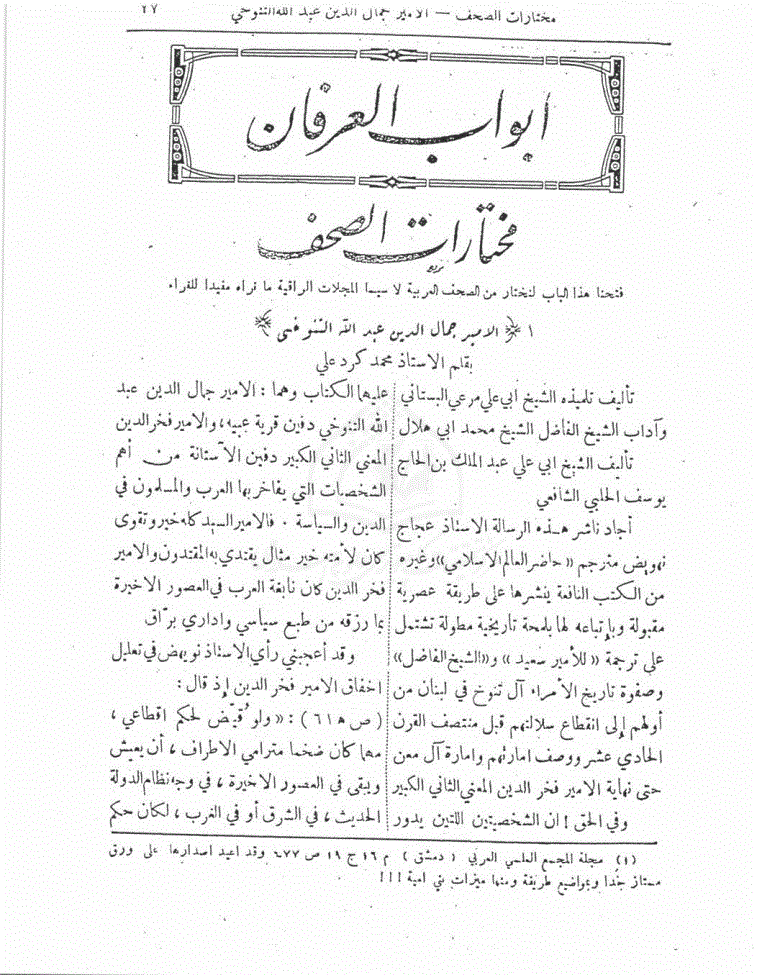 مختارات الصحف — الامير جمال الدين عبد الله التنوخي ٢٧
ابواب العرفان
مختارات الصحف
فتحنا هذا الباب لنختار من الصحف العربية لا سيما المجلات الراقية ما نراه مفيدا للقراء
١ ﴿ الامير جمال الدين عبد الله التنوخي ﴾
بقلم الاستاذ محمد كرد علي
تأليف تلميذه الشيخ أبي علي مرعي البستاني
وآداب الشيخ الفاضل الشيخ محمد ابي هلال
تأليف الشيخ ابي علي عبد الملك بن الحاج
يوسف الحلبي الشافعي
أجاد ناشر هذه الرسالة الاستاذ عجاج
نهويض مترجم «حاضر العالم الاسلامي» وغيره
من الكتب النافعة ينشرها على طريقة عصرية
مقبولة وبإتباعه لها بلمحة تأريخية مطولة تشتمل
على ترجمة «للأمير سعيد» و«الشيخ الفاضل»
وصفوة تاريخ الأمراء آل تنوخ في لبنان من
أولهم إلى انقطاع سلالتهم قبل منتصف القرن
الحادي عشر ووصف امارتهم وامارة آل معن
حتى نهاية الامير فخر الدين المعني الثاني الكبير
وفي الحق ! ان الشخصيتين اللتين يدور
عليها الكتاب وهما : الامير جمال الدين عبد
الله التنوخي دفين قرية عبيه، والامير فخر الدين
المعني الثاني الكبير دفين الآستانة من أهم
الشخصيات التي يفاخر بها العرب والمسلمون في
الدين والسياسة . فالامير السيد كله خير وتقوى
كان لأمته خير مثال يقتدي به المقتدون والامير
فخر الدين كان نابغة العرب في العصور الاخيرة
بما رزقه من طبع سياسي واداري برّاق
وقد أعجبني رأي الاستاذ نويهض في تعليل
اخفاق الامير فخر الدين إذ قال :
( ص ٦١ ) : « ولو قيّض لحكم اقطاعي ،
مهما كان ضخما مترامي الاطراف ، أن يعيش
ويبقى في العصور الاخيرة ، في وجه نظام الدولة
الحديث ، في الشرق أو في الغرب ، لكان حكم
(١) مجلة المجمع العلمي العربي ( دمشق ) م ١٦ ج ١٩ ص ٦٧٧ وقد اعيد اصدارها على ورق
ممتاز جدا وبمواضيع طريفة ومنها ميزات بني امية !!!